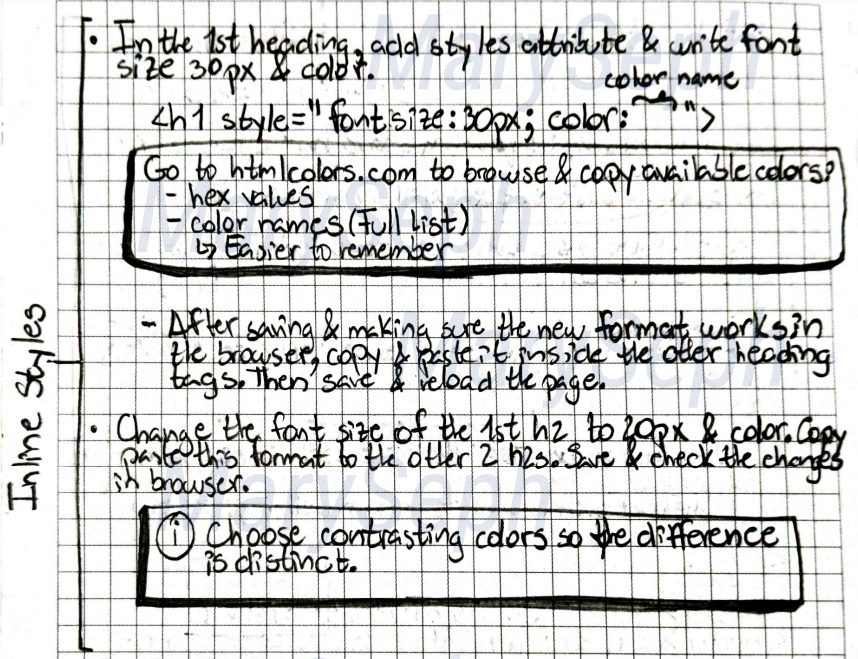 Inline Styles
• In the 1st heading, add styles attribute & write font
size 30px & color.
color name
<h1 style=" font size: 30px; color: ">
Go to htmlcolors.com to browse & copy available colors:
- hex values
- color names (Full List)
↳ Easier to remember
- After saving & making sure the new format works in
the browser, copy & paste it inside the other heading
tags. Then save & reload the page.
• Change the font size of the 1st h2 to 20px & color. Copy
paste this format to the other 2 h2s. Save & check the changes
in browser.
i Choose contrasting colors so the difference
is distinct.
MarySeph
MarySeph
MarySeph
MarySeph